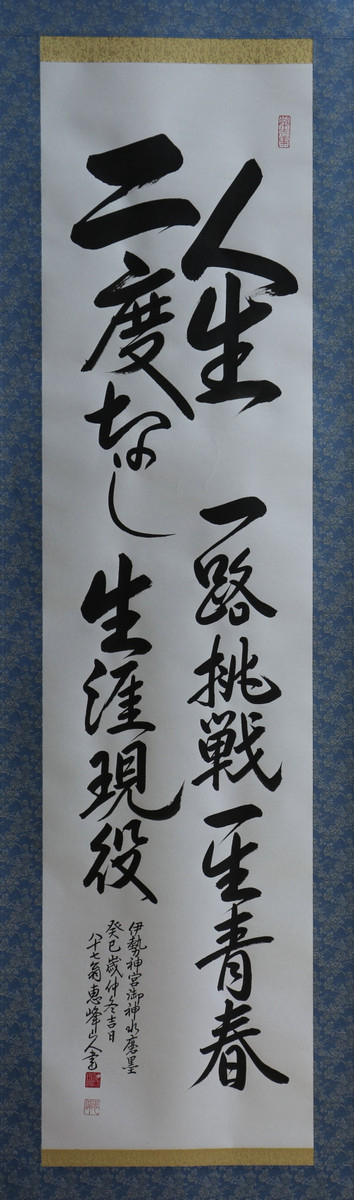 人生　一路挑戦一生青春
二度なし　生涯現役
伊勢神宮御神水磨墨
癸巳歳仲冬吉日
八十七翁恵峰山人書